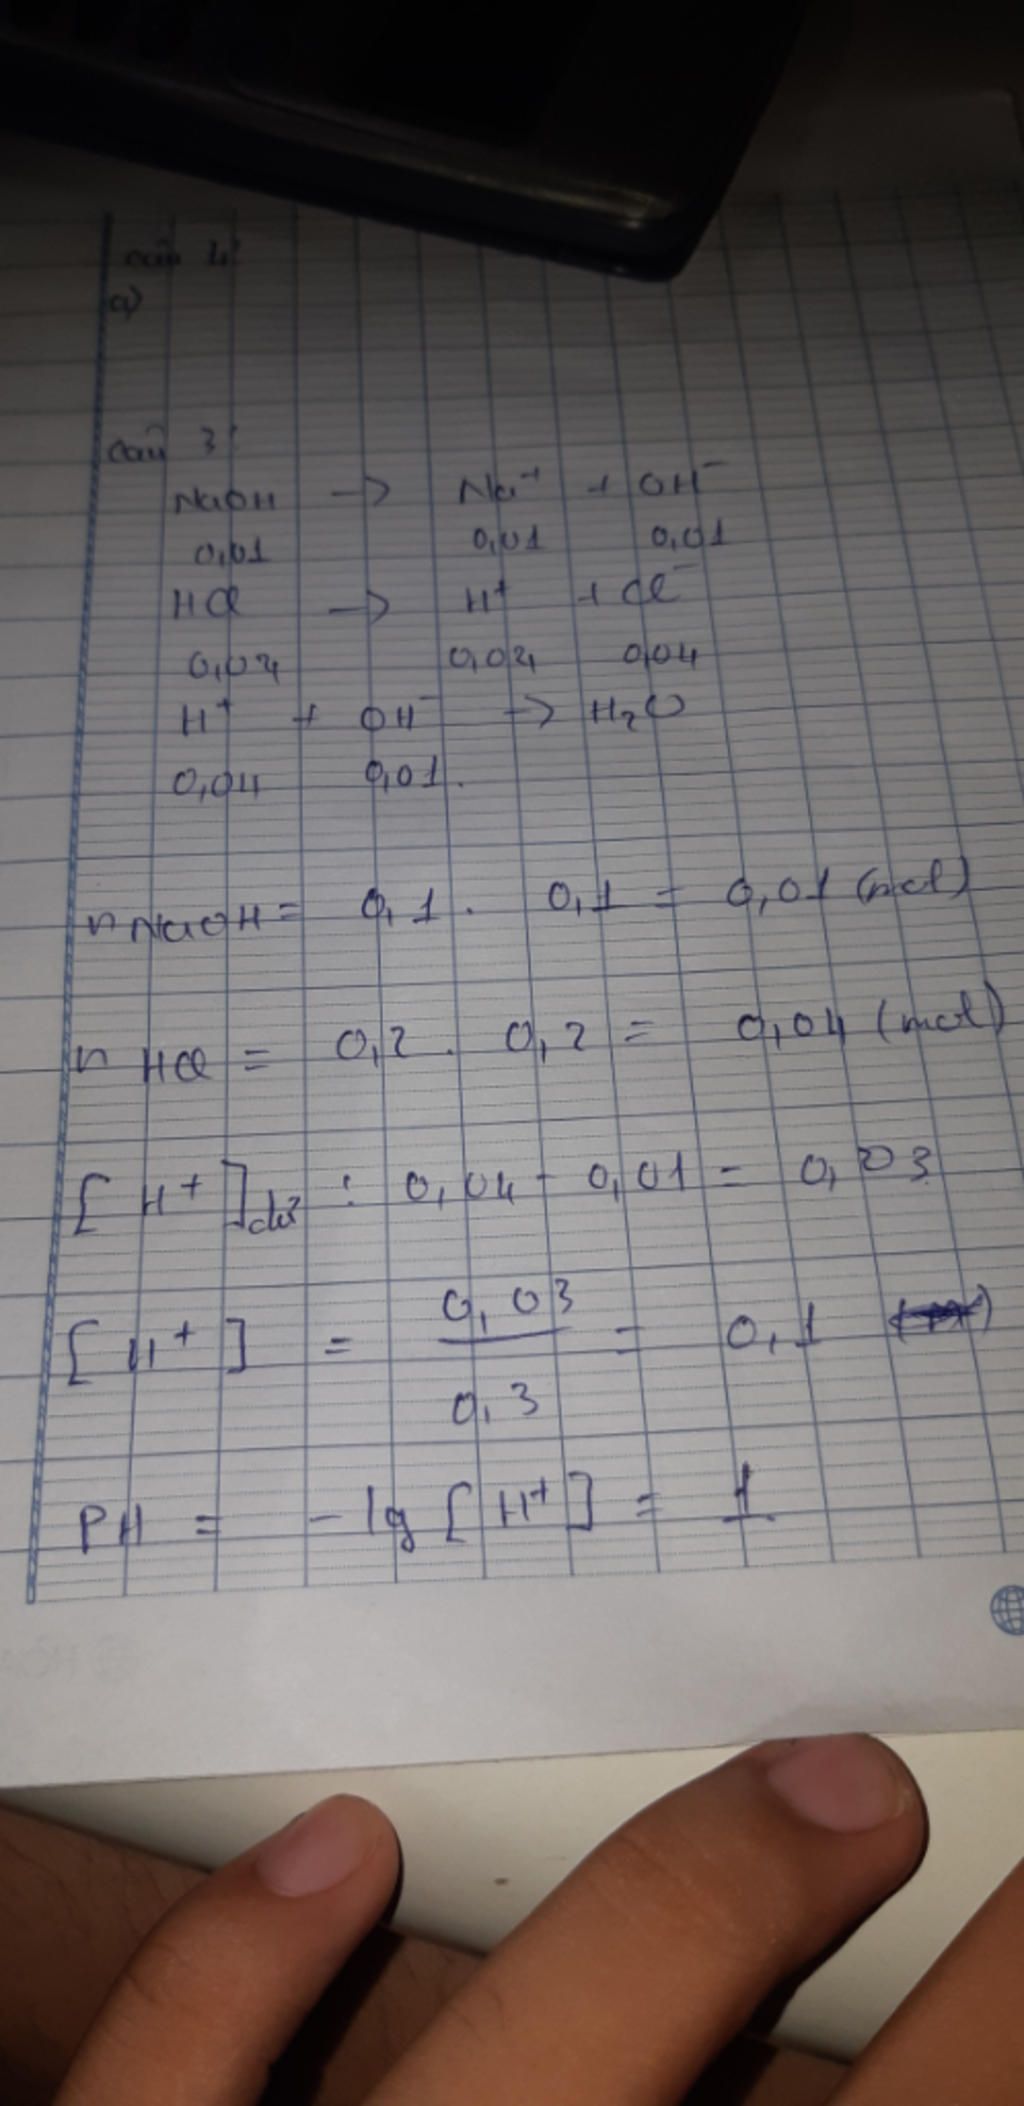 câu 4:
a)
câu 3:
NaOH → Na⁺ + OH⁻
0,01 0,01 0,01
HCl → H⁺ + Cl⁻
0,04 0,04 0,04
H⁺ + OH⁻ → H₂O
0,04 0,01.
nNaOH = 0,1 . 0,1 = 0,01 (mol)
nHCl = 0,2 . 0,2 = 0,04 (mol)
[H⁺]dư : 0,04 - 0,01 = 0,03
[H⁺] = 0,03 / 0,3 = 0,1
PH = -lg [H⁺] = 1